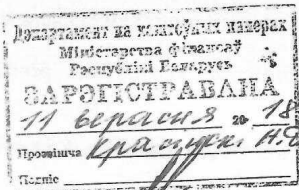 Дэпартамент па каштоўных паперах
Міністэрства фінансаў
Рэспублікі Беларусь
ЗАРЭГІСТРАВАНА
11 верасня 20 18
Прозвішча
Подпіс